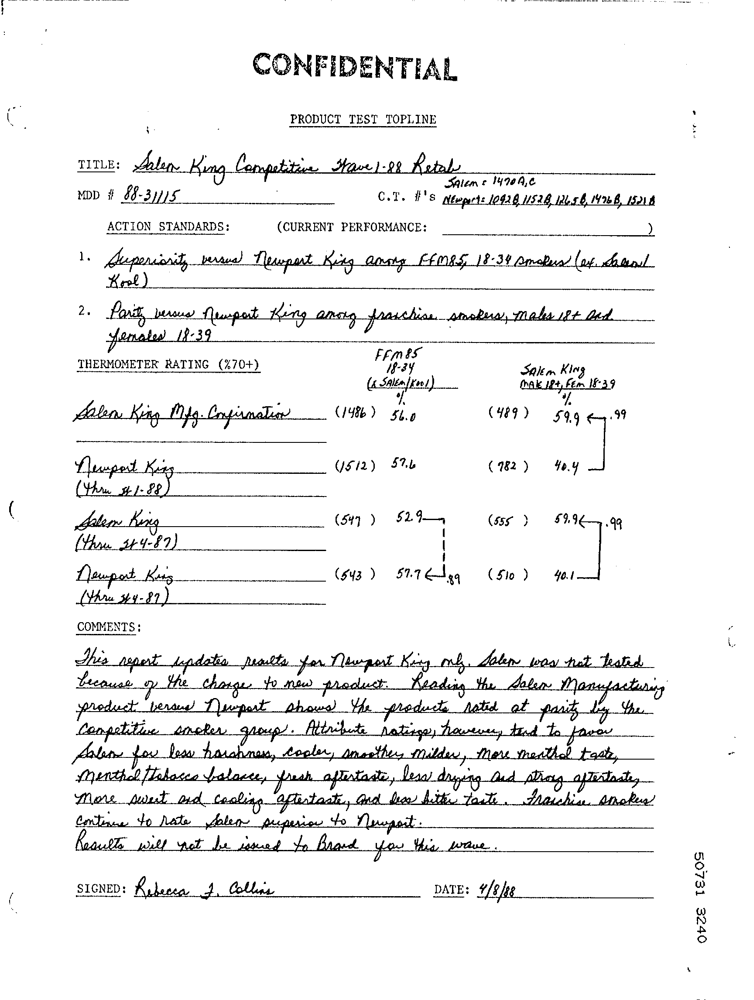 CONFIDENTIAL
PRODUCT TEST TOPLINE
TITLE: Salem King Competitive Wave 1-88 Retab
Salem: 1470A,C
MDD # 88-31115 C.T. #'s Newport: 1092B, 1152B, 1265B, 1476B, 1521B
ACTION STANDARDS: (CURRENT PERFORMANCE: )
1. Superiority versus Newport King among FFM85, 18-34 smokers (ex. Salem/
Kool)
2. Parity versus Newport King among franchise smokers, males 18+ and
females 18-39
FFM85
THERMOMETER RATING (%70+) 18-34 Salem King
(x Salem/Kool) Male 18+, Fem 18-39
% %
Salem King Mfg. Confirmation (1486) 56.0 (489) 59.9 .99
Newport King (1512) 57.6 (782) 40.4
(thru 1-88)
Salem King (547) 52.9 (555) 59.9 .99
(thru 4-87)
Newport King (543) 57.7 .89 (510) 40.1
(thru 4-87)
COMMENTS:
This report updates results for Newport King only. Salem was not tested
because of the change to new product. Reading the Salem Manufacturing
product versus Newport shows the products rated at parity by the
competitive smoker group. Attribute ratings, however, tend to favor
Salem for less harshness, cooler, smoother, milder, more menthol taste,
menthol/tobacco balance, fresh aftertaste, less drying and strong aftertaste,
more sweet and cooling aftertaste, and less bitter taste. Franchise smokers
continue to rate Salem superior to Newport.
Results will not be issued to Brand for this wave.
SIGNED: Rebecca J. Collins DATE: 4/8/88
50731 3240